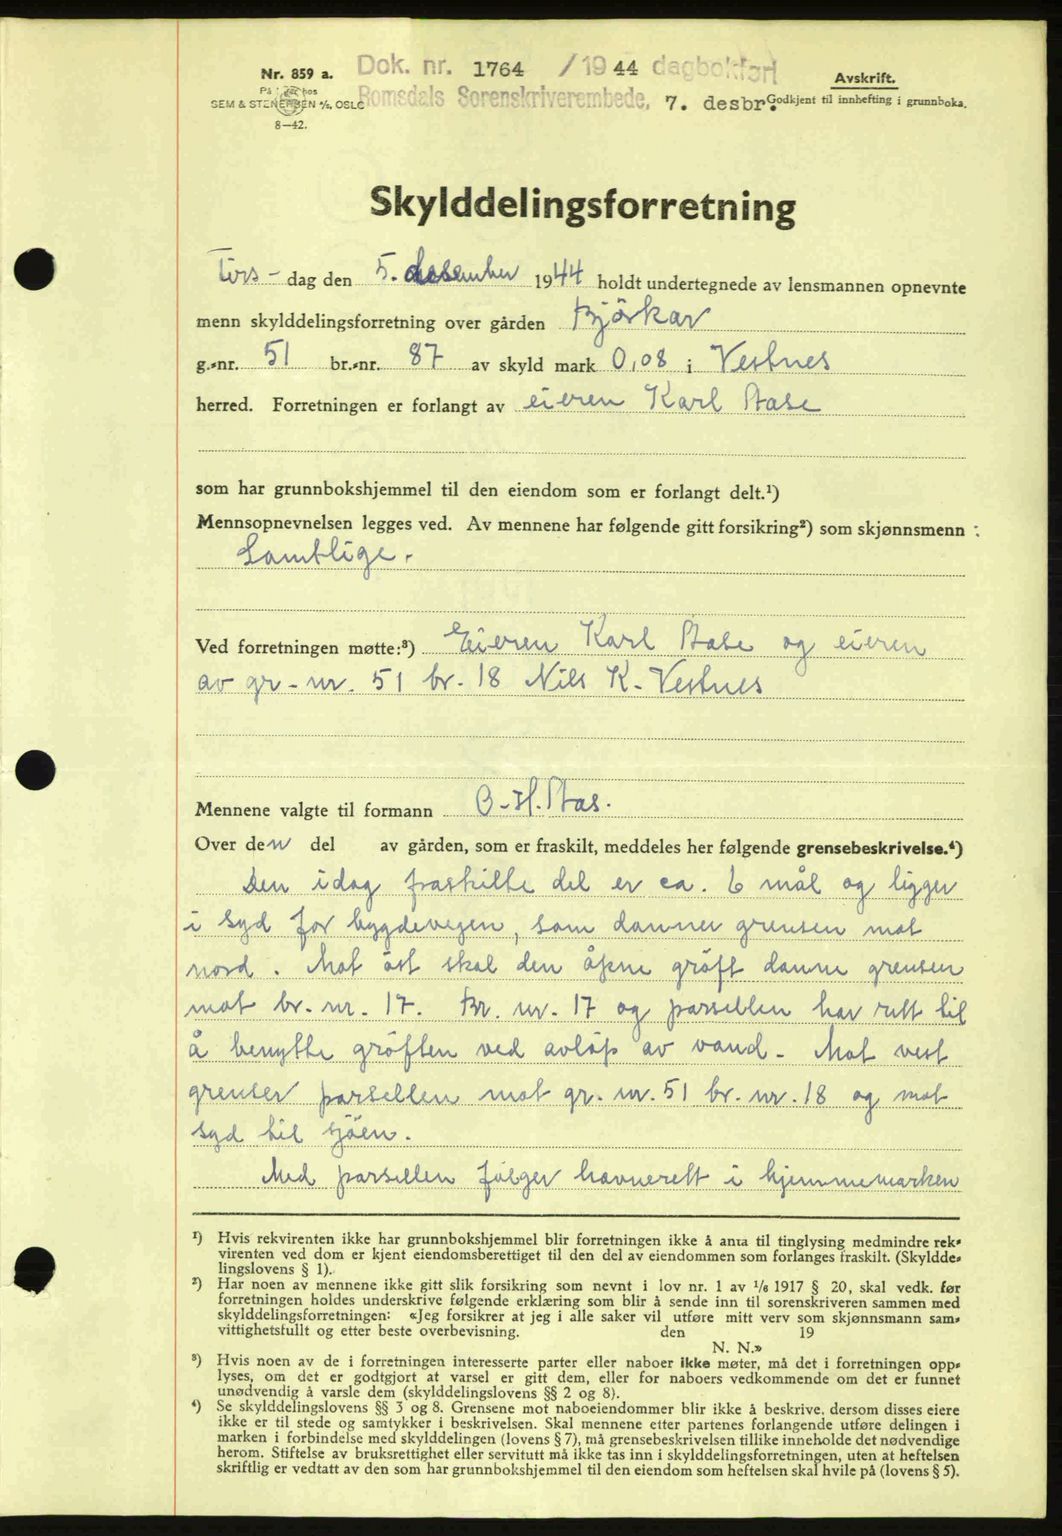 Nr. 859 a.
På hos
SEM & STENERSEN A/S, OSLO
8—42.
Dok. nr. 1764 / 19 44 dagbokført
Romsdals Sorenskriverembede, 7. desbr.
Avskrift.
Godkjent til innhefting i grunnboka.
Skylddelingsforretning
Tirs - dag den 5. desember 1944 holdt undertegnede av lensmannen opnevnte
menn skylddelingsforretning over gården Björkar
g.-nr. 51 br.-nr. 87 av skyld mark 0,08 i Vestnes
herred. Forretningen er forlangt av eieren Karl Stase
som har grunnbokshjemmel til den eiendom som er forlangt delt.¹)
Mennsopnevnelsen legges ved. Av mennene har følgende gitt forsikring²) som skjønnsmenn :
Samtlige.
Ved forretningen møtte:³) Eieren Karl Stase og eieren
av gr- nr. 51 br. 18 Nils K. Vestnes
Mennene valgte til formann O. H. Stas.
Over den del av gården, som er fraskilt, meddeles her følgende grensebeskrivelse.⁴)
Den idag fraskilte del er ca. 6 mål og ligger
i syd for bygdevegen, som danner grensen mot
nord. Mot öst skal den åpne gröft danne grensen
mot br. nr. 17. Br. nr. 17 og parsellen har rett til
å benytte gröften ved avlöp av vand. Mot vest
grenser parsellen mot gr. nr. 51 br. nr. 18 og mot
syd til sjöen.
Med parsellen fölger havnerett i hjemmemarken
¹) Hvis rekvirenten ikke har grunnbokshjemmel blir forretningen ikke å anta til tinglysing medmindre rek-
virenten ved dom er kjent eiendomsberettiget til den del av eiendommen som forlanges fraskilt. (Skyldde-
lingslovens § 1).
²) Har noen av mennene ikke gitt slik forsikring som nevnt i lov nr. 1 av 1/6 1917 § 20, skal vedk. før
forretningen holdes underskrive følgende erklæring som blir å sende inn til sorenskriveren sammen med
skylddelingsforretningen: «Jeg forsikrer at jeg i alle saker vil utføre mitt verv som skjønnsmann sam-
vittighetsfullt og etter beste overbevisning. den 19
N. N.»
³) Hvis noen av de i forretningen interesserte parter eller naboer ikke møter, må det i forretningen opp-
lyses, om det er godtgjort at varsel er gitt dem, eller for naboers vedkommende om det er funnet
unødvendig å varsle dem (skylddelingslovens §§ 2 og 8).
⁴) Se skylddelingslovens §§ 3 og 8. Grensene mot naboeiendommer blir ikke å beskrive, dersom disses eiere
ikke er til stede og samtykker i beskrivelsen. Skal mennene etter partenes forlangende utføre delingen i
marken i forbindelse med skylddelingen (lovens § 7), må grensebeskrivelsen tillike inneholde det nødvendige
herom. Stiftelse av bruksrettighet eller servitutt må ikke tas inn i skylddelingsforretningen, uten at heftelsen
skriftlig er vedtatt av den som har grunnbokshjemmel til den eiendom som heftelsen skal hvile på (lovens § 5).